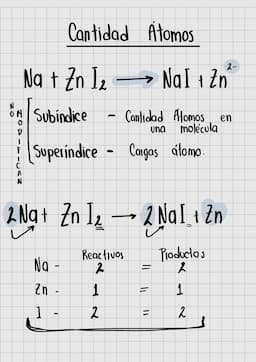 Cantidad Átomos
Na + Zn I₂ ⟶ NaI + Zn²⁻
NO MODIFICAN
Subíndice - Cantidad Átomos en una molécula
Superíndice - Cargas átomo.
2Na + Zn I₂ ⟶ 2NaI + Zn
Reactivos Productos
Na - 2 = 2
Zn - 1 = 1
I - 2 = 2